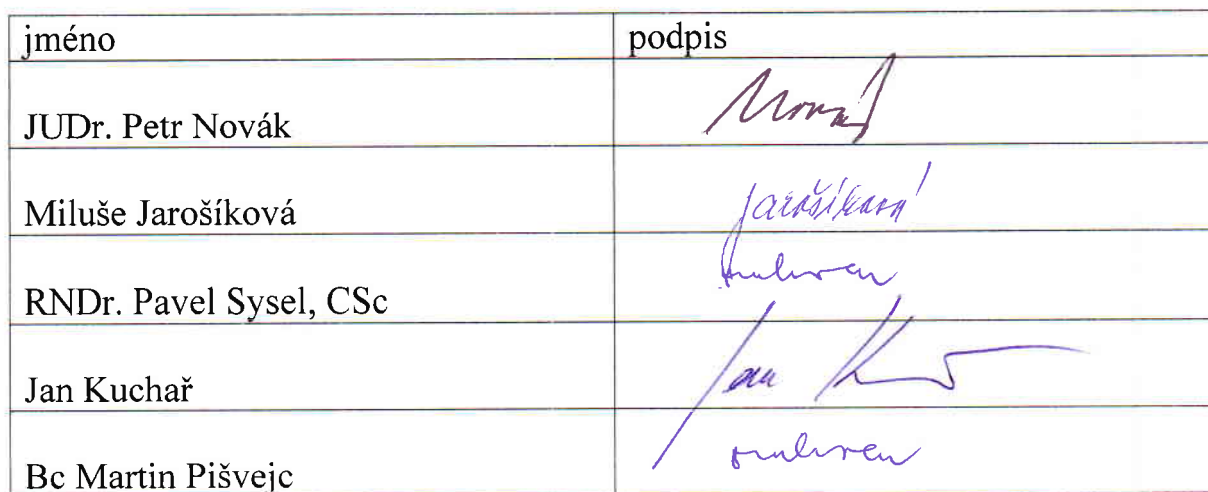 jméno podpis
JUDr. Petr Novák Novák
Miluše Jarošíková Jarošíková
RNDr. Pavel Sysel, CSc omluven
Jan Kuchař Jan
Bc Martin Pišvejc omluven